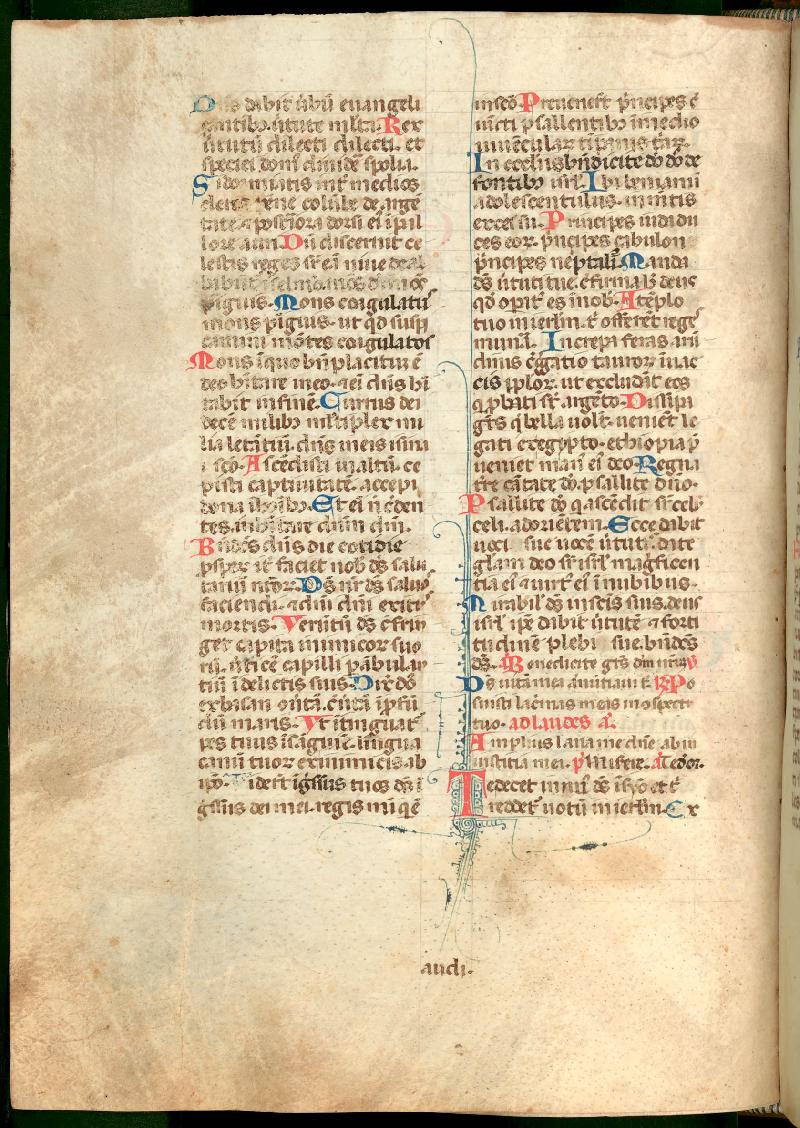 Dns dabit ũbũ euangeli
çantibꝫ ũtute mľta. Rex
ũtutũ dilecti dilecti. et
speciei domꝰ diuidẽ spolia.
Si dormiatis int̃ medios
cleros penne colũbe de argẽ
tate ⁊ posteriora dorsi eĩ ĩ pal
lore auri. Dũ discernit ce
lestis reges sr̃ eã niue deal
babunt ĩ selmõ. mõs dei mõs
pĩguis. Mons coagulatus
mons pĩguis. ut qd suspi
camini mõtes coagulatos
Mons ĩ quo bñ placitũ ẽ
deo hĩtare in eo. ⁊ eĩ dñs hĩ
tabit in finẽ. Currus dei
decẽ milibꝫ mľtiplex mi
lia letãtiũ. dñs in eis isina
i scõ. Ascẽdisti in altũ. ce
pisti captiuitatẽ. accepi
dona ĩ hoĩbꝫ. Et eĩ ñ creden
tes. inhĩtare dñm dm̃.
Bñdcs dñs die cotidie
psper̃ it̃ faciet nob ds̃ salu
tariũ nr̃or. Ds̃ nr̃ ds̃ saluos
faciendi. ⁊ dñi dñi exitꝰ
mortis. Verũtñ ds̃ cõfrin
get capita inimicor suo
rũ. ũticẽ capilli pãbulan
tiũ ĩ delictis suis. Dix̃ dñs
ex basan cõũtã. cõũtã ĩ pfũ
dũ maris. Vt ĩtinguat̃
pes tuus ĩ sãguie. lingua
canũ tuor ex inimicis ab
ipo. Viderũt ĩgr̃ssus tuos ds̃ ĩ
gr̃ssus dei mei. regis mi qẽ
in scõ. Preuenerũt p̃ncipes cõ
iũcti psallentibꝫ ĩ medio
iuuẽcular tĩpanistar.
In ecclĩis bñdicite dõ dño de
fontibꝫ isrľ. Ibi beniamĩ
adolescentulus. in mẽtis
excessu. Principes iuda du
ces eor. p̃ncipes çabulon
p̃ncipes neptalĩ. Manda
ds̃ ũtuti tue. cõfirma h̃ deus
qd opat̃ es in nob. A tẽplo
tuo in ierľm. t̃ offerẽt reges
mun̄a. Increpa feras arũ
dinis cõgregatio tauror ĩ uac
cis ploꝝ. ut excludãt eos
q̃ pbati sr̃ argẽto. Dissipa
gẽts q̃ bella uolũt. uenient le
gati ex egypto. ethiopia p̃
ueniet manꝰ eĩ deo. Regna
tr̃e cãtate dõ. psallite dño.
Psallite dõ q̃ ascẽdit sr̃ celũ
celi. ad oriẽtem. Ecce dabit
uoci sue uocẽ ũtutĩ. date
glãm deo sr̃ isrľ. magficen
tia eĩ ⁊ uirtꝰ eĩ ĩ nubibus.
Mirabil ds̃ in scĩs suis. deus
isrľ ipe dabit ũtutẽ ⁊ forti
tudinẽ plebi sue. bñdcs
ds̃. A Benedicite gẽts dm̃ nr̃m. ℣
Ds uitã meã ãnũtiaui t̃. ℟ Po
suisti lac̃mas meas in ospectu
tuo. ad laudes ã.
Amplius laua me dñe ab in
iustitia mea. p̃s Miserẽ. ã Te dec̃.
Te decet imnꝰ ds̃ ĩ syõ et t̃
reddet̃ uotũ in ierľm. Ex
audi.